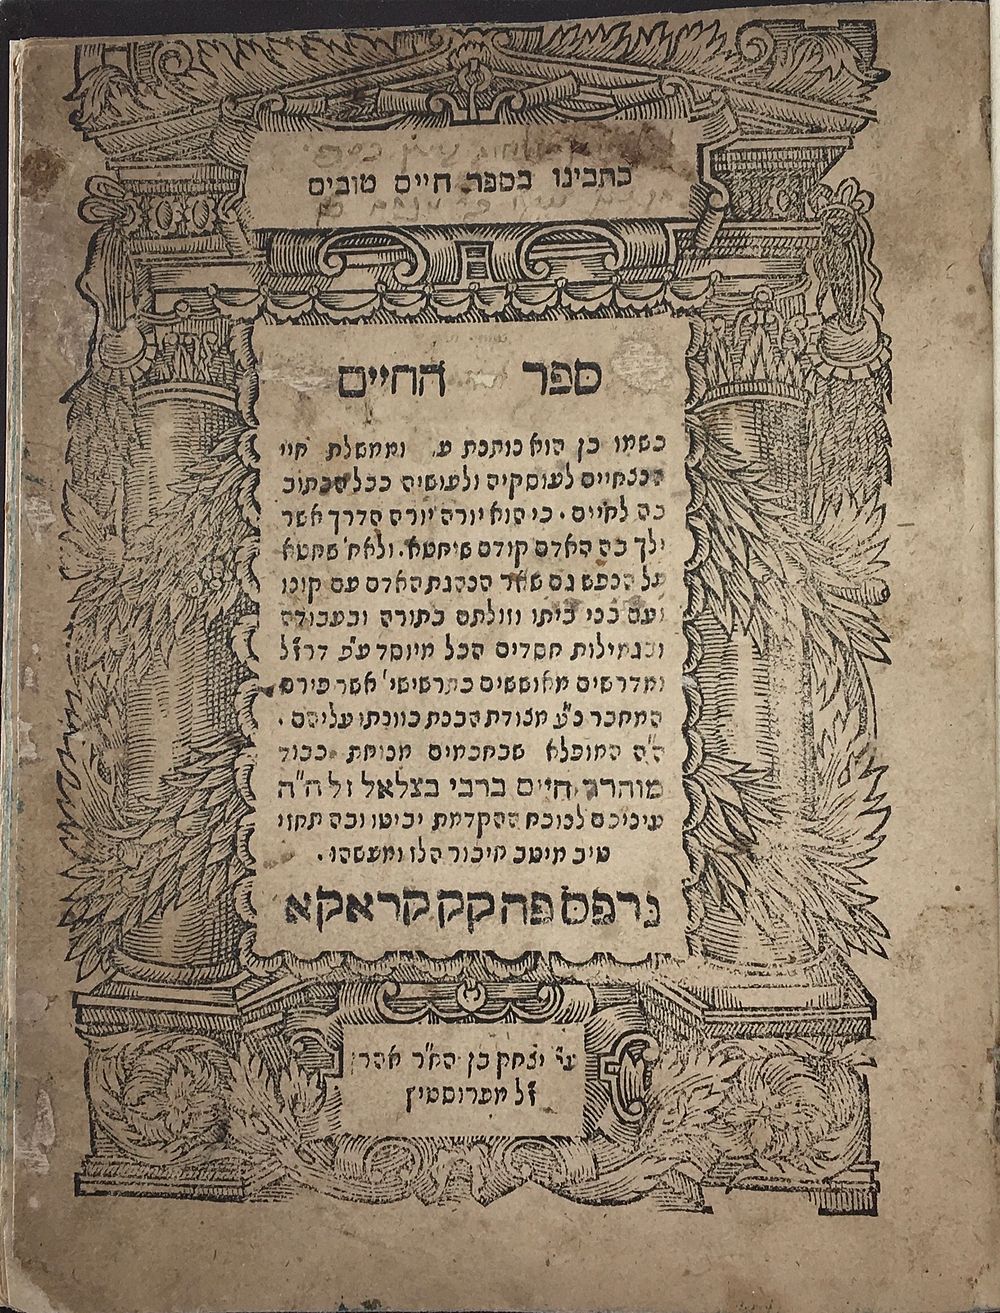 כתבינו בספר חיים טובים
ספר החיים
כשמו כן הוא נותנת וממשלת חיי
הנצחיים לעוסקיה ולעושיה ככל הכתוב
בה לחיים . כי הוא יורה יורה הדרך אשר
ילך בה האדם קודם שיחטא . ולאח' שחטא
על הנפש גם שאר הנהגת האדם עם קונו
ועם בני ביתו וזולתם בתורה ובעבודה
ובגמילות חסדים הכל מיוסד ע"פ דרז"ל
ומדרשים מאוששים בתרשישי' אשר פירם
המחבר נ"ע מצודת הבנת כוונתו עליהם .
ה"ה המופלא שבחכמים מנוחת כבוד
מוהרר חיים ברבי בצלאל זל ה"ה
עיניכם לנוכח ההקדמת יביטו ובה תחזו
טיב מיטב חיבור הלז ומעשהו .
נדפס פה קק קראקא
ע"י יצחק בן הא"ר אהרן
זל מפרוסטיץ